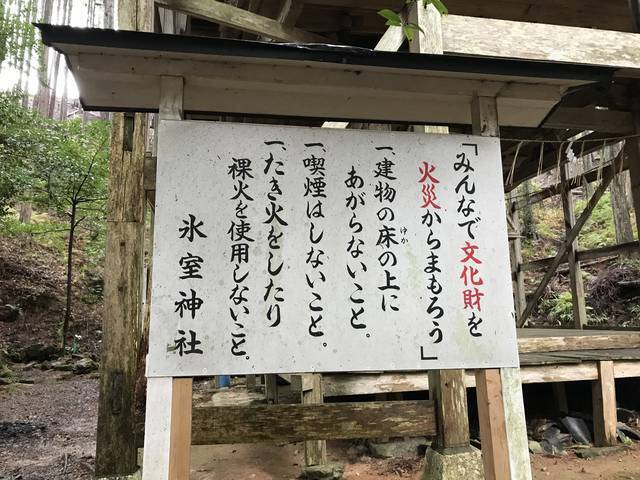 「みんなで文化財を
火災からまもろう」
一、建物の床の上に
ゆか
あがらないこと。
一、喫煙はしないこと。
一、たき火をしたり
裸火を使用しないこと。
氷室神社